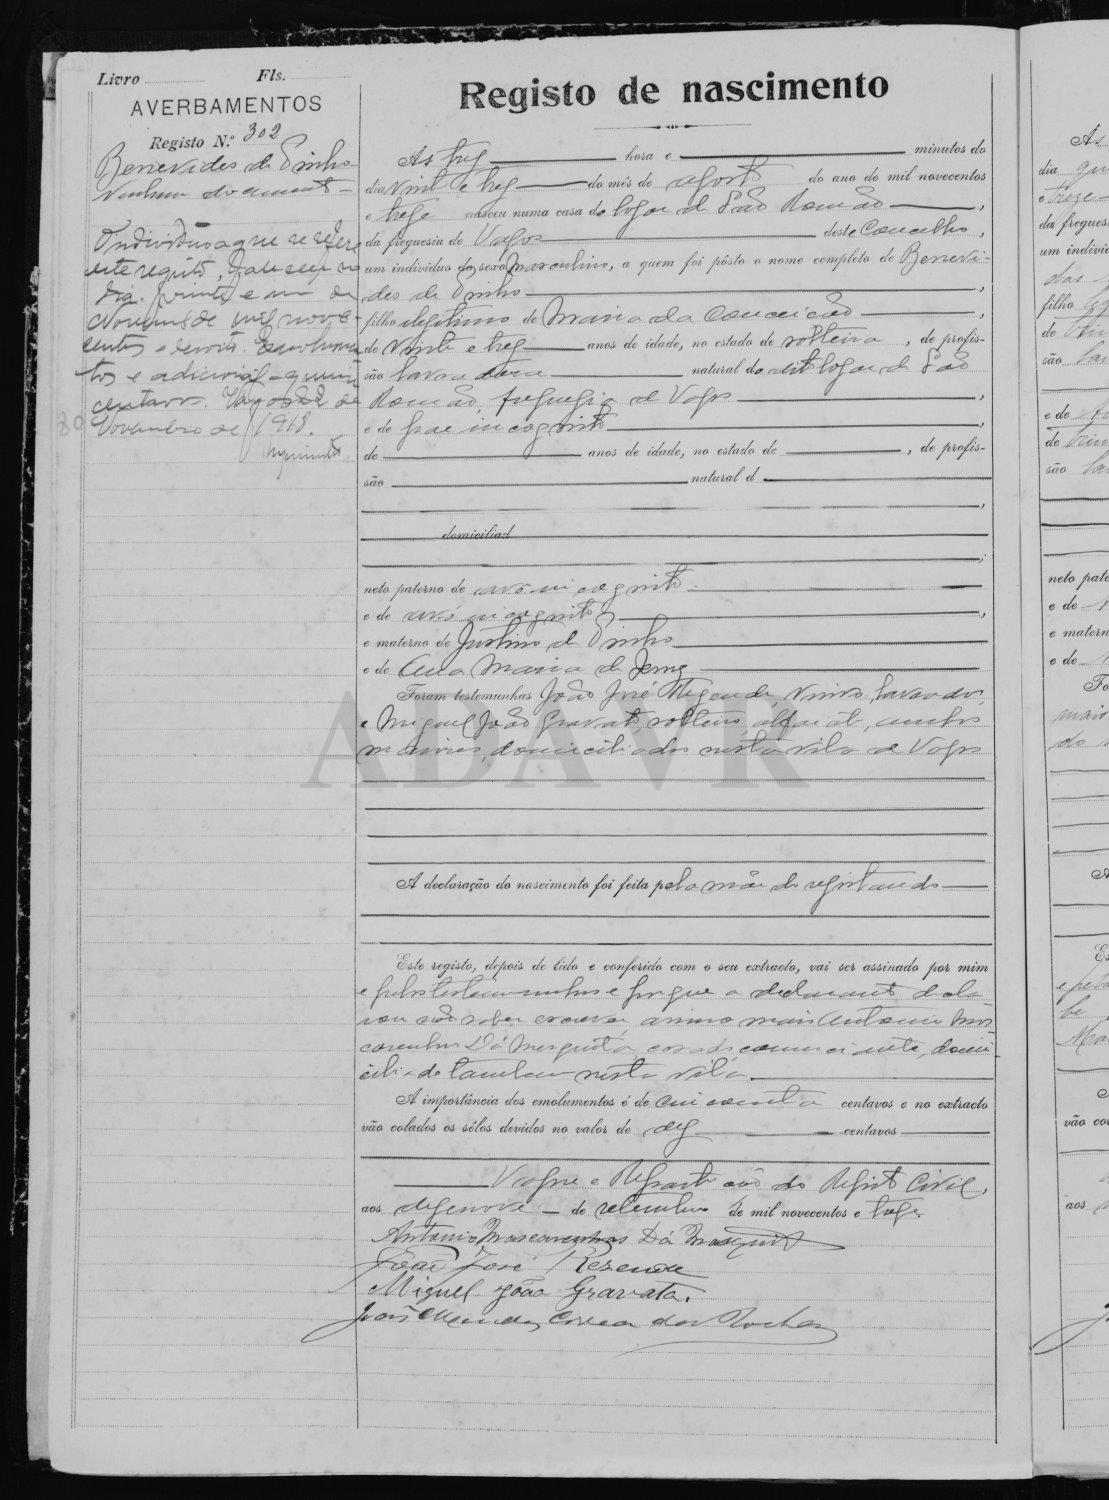 Livro Fls.
AVERBAMENTOS
Registo N.º 302
Benevides de Pinho
Nenhum documento
O individuo a que se refere
este registo, faleceu no
dia trinta e um de
Novembro de mil nove-
centos e dezoito. Emolumen-
tos e adicional - quinze
centavos. Vagos 22 de
Novembro de 1918.
80
Registo de nascimento
Às trez hora e minutos do
dia vinte e trez do mês de agosto do ano de mil novecentos
e treze nasceu numa casa do logar de São Romão,
da freguesia de Vagos deste Concelho,
um indivíduo do sexo masculino, a quem foi pôsto o nome completo de Benevi-
des de Pinho,
filho ilegitimo de Maria da Conceição,
de vinte e trez anos de idade, no estado de solteira, de profis-
são lavradora natural do dito logar de São
Romão, freguezia de Vagos,
e de pae incognito,
de anos de idade, no estado de , de profis-
são natural d
,
domiciliad
;
neto paterno de avô incognito
e de avó incognito,
e materno de Justino de Pinho
e de Ana Maria de Jesus
Foram testemunhas João José Rezende, viuvo, lavrador,
e Miguel João Gravato, solteiro, alfaiate, ambos
maiores, domiciliados nesta vila de Vagos
ADAVR
A declaração do nascimento foi feita pela mãe do registando
Este registo, depois de lido e conferido com o seu extracto, vai ser assinado por mim
e pelas testemunhas e porque a declarante decla-
rou não saber escrever, assina mais Antonio Mas-
carenhas Dá Mesquita, casado, comerciante, domi-
ciliado tambem nesta vila.
A importância dos emolumentos é de cincoenta centavos e no extracto
vão colados os sêlos devidos no valor de dez centavos
Vagos e Repartição do Registo Civil,
aos dezenove de setembro de mil novecentos e treze.
Antonio Mascarenhas Dá Mesquita
João José Rezende
Miguel João Gravato.
João Mendes Correa da Rocha
Às
dia
e treze
da fregues
um indivi
filho
de
são
e de
de
são
neto pate
e de
e matern
e de
Fo
A
Es
e pela
A
vão co
aos